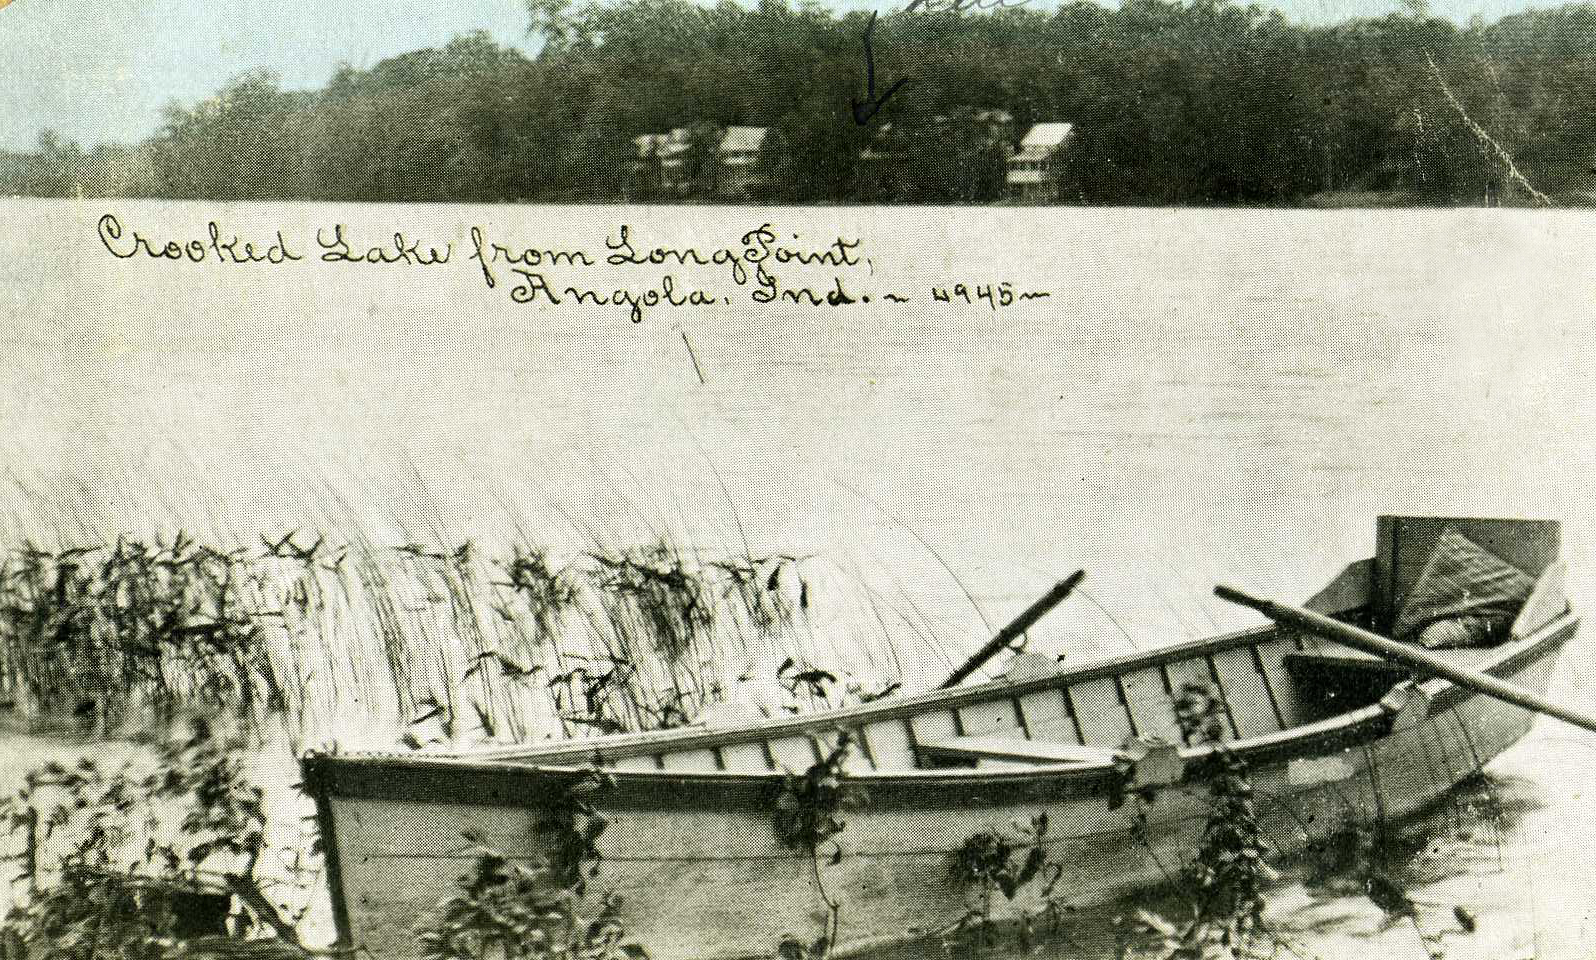 Crooked Lake from Long Point,
Angola, Ind. ~ 4945 ~